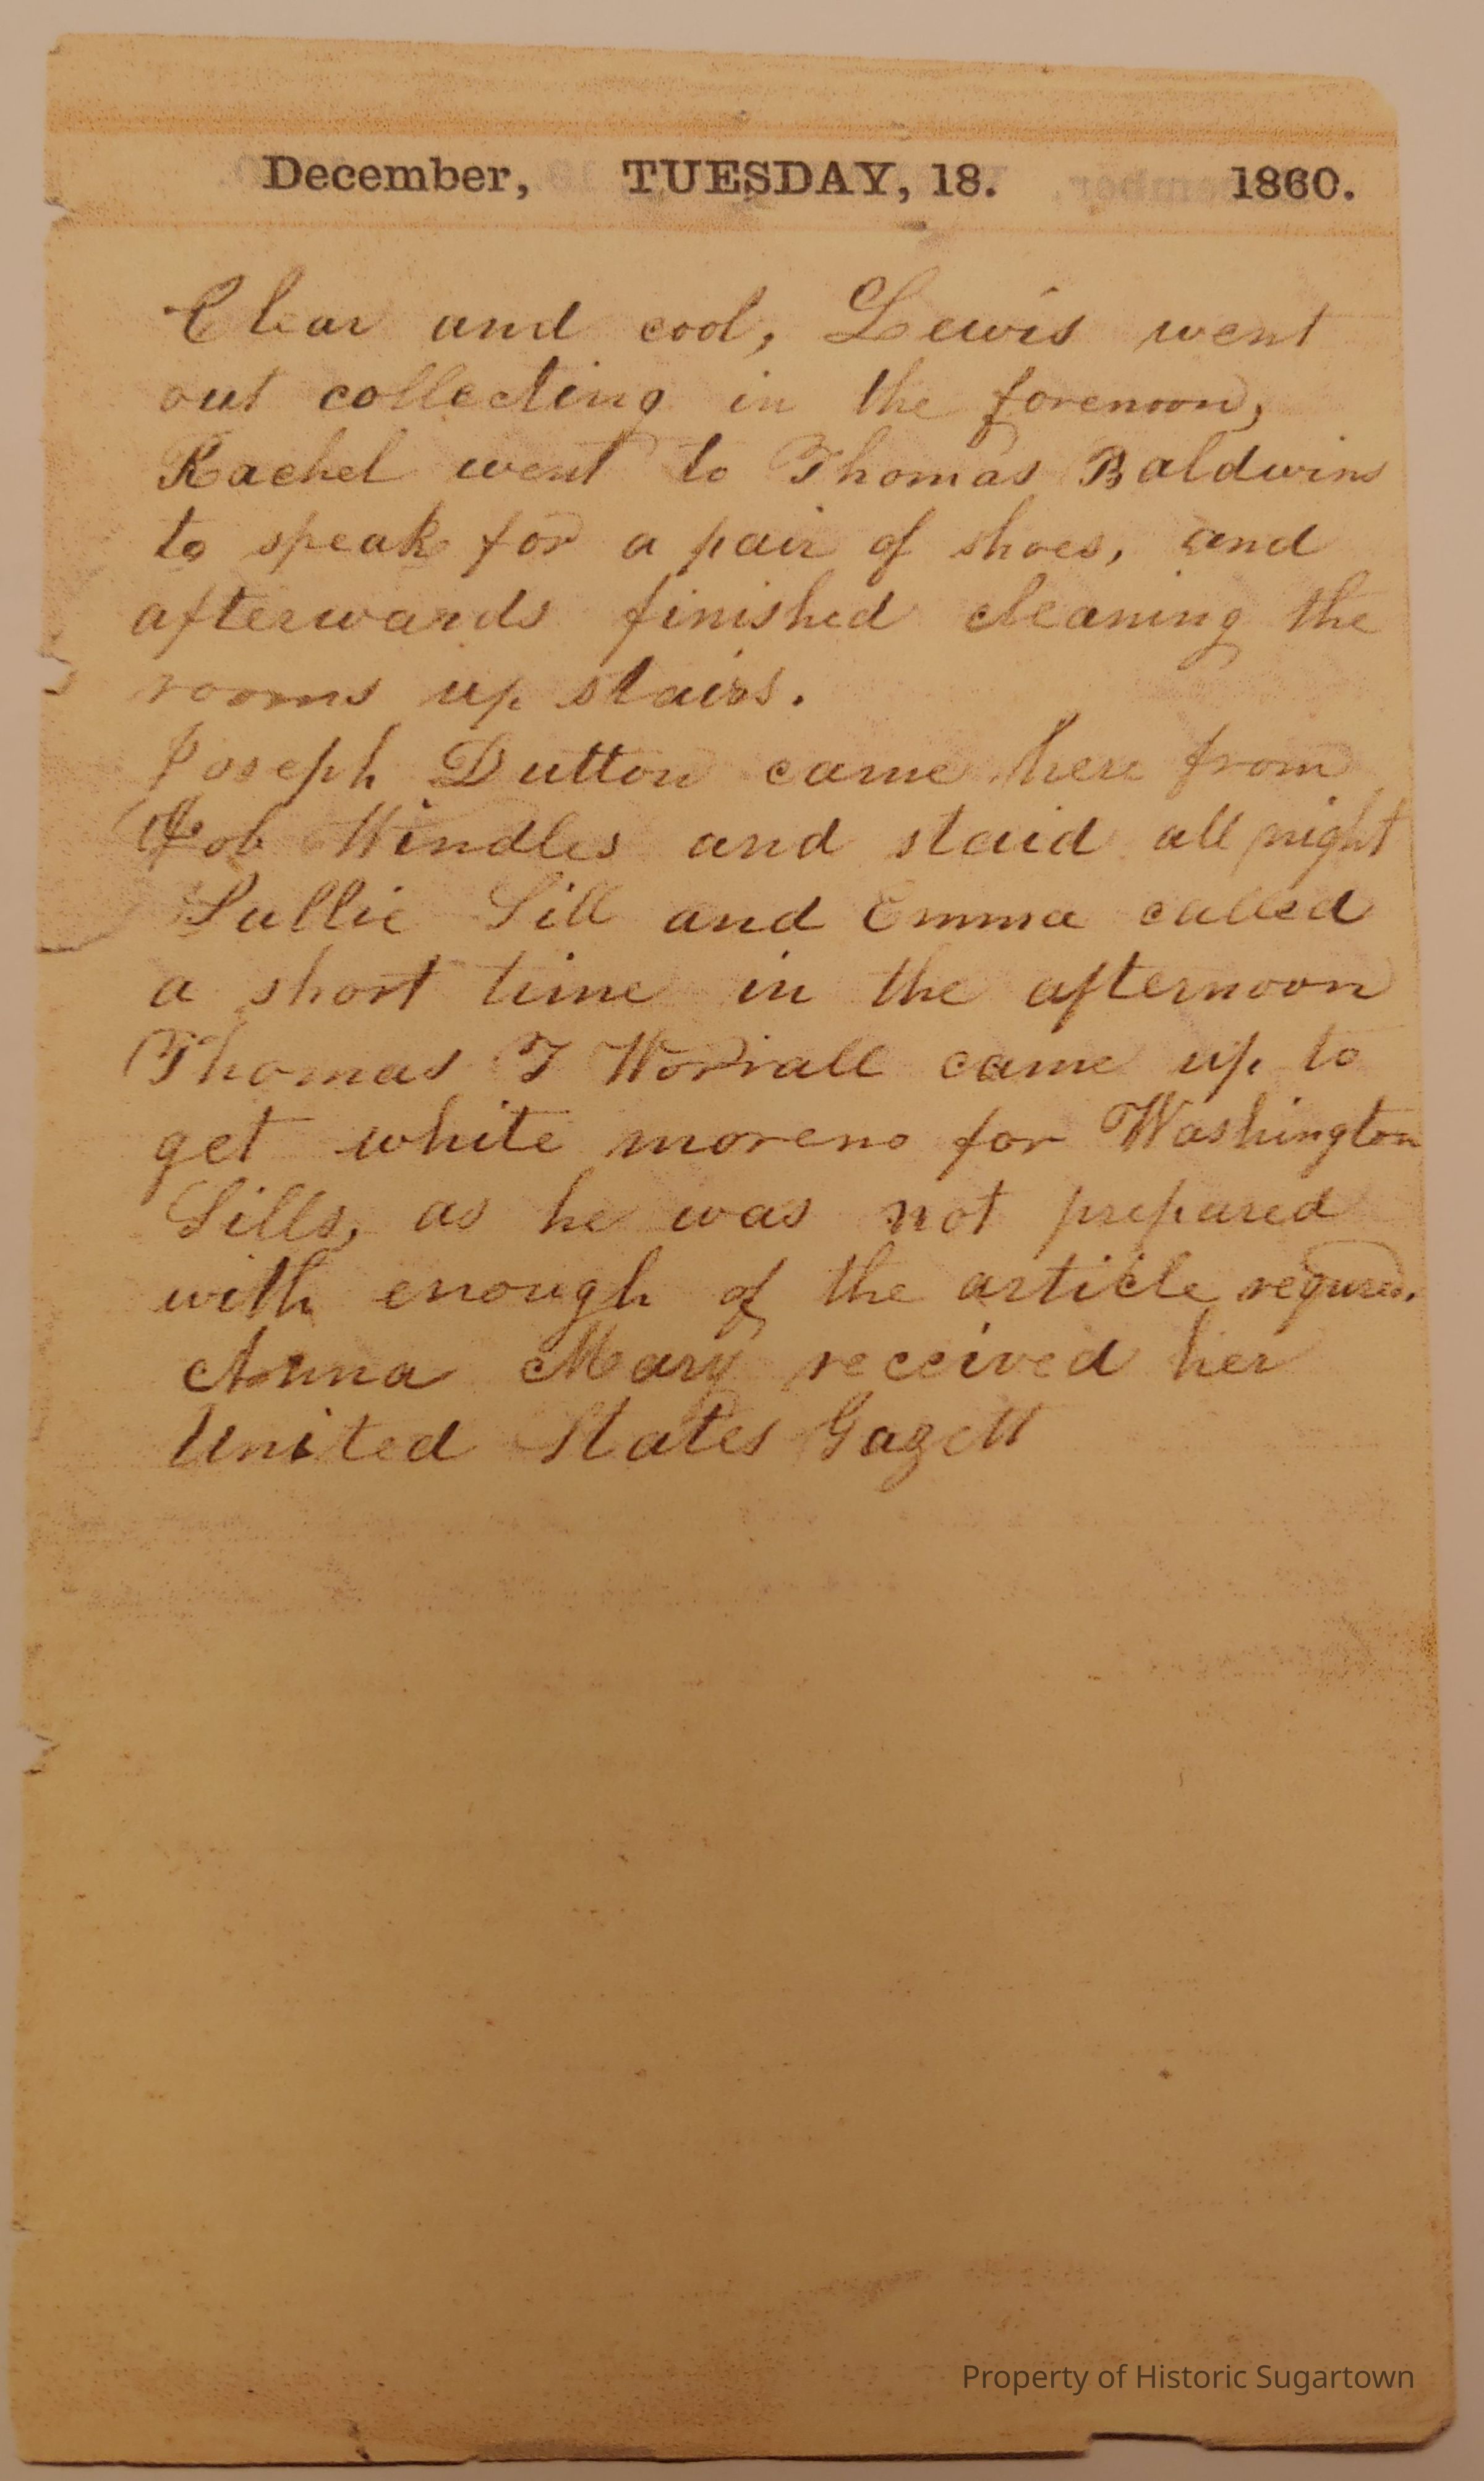 December, TUESDAY, 18. 1860.
Clear and cool, Lewis went
out collecting in the forenoon,
Rachel went to Thomas Baldwins
to speak for a pair of shoes, and
afterwards finished cleaning the
rooms up stairs.
Joseph Dutton came here from
Job Windles and staid all night
Sallie Sill and Emma called
a short time in the afternoon
Thomas T Worrall came up to
get white moreno for Washington
Sills, as he was not prepared
with enough of the article requred.
Anna Mary received her
United States Gazett
Property of Historic Sugartown